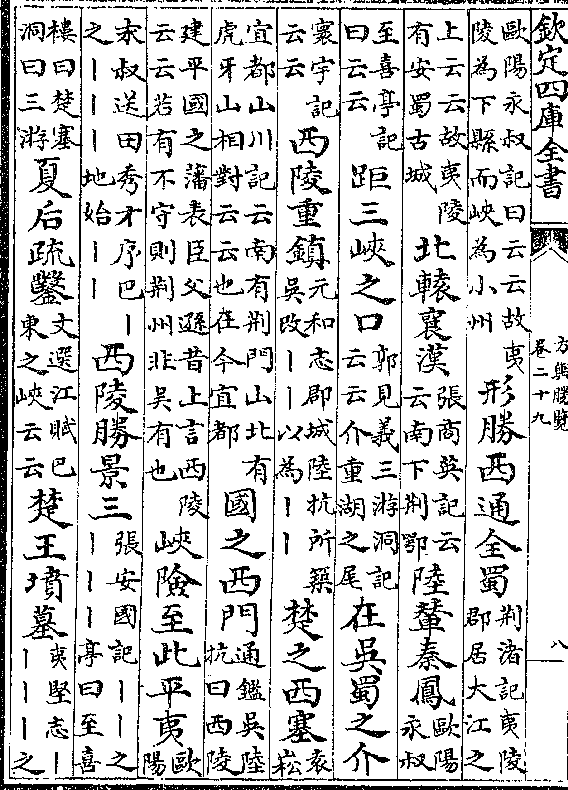 欽定四庫全書
方輿勝覽
卷二十九
八
歐陽永叔記曰云云故夷陵為下縣而峽為小州形勝西通全蜀荆渚記夷陵郡居大江之
上云云故夷陵有安蜀古城北轅襄漢張商英記云云南下荆鄂陸輦秦鳳歐陽永叔
至喜亭記曰云云距三峽之口郭見義三游洞記云云介重湖之尾在吳蜀之介
寰宇記云云西陵重鎮元和志郡城陸抗所築吳改丨丨以為丨丨楚之西塞袁崧
宜都山川記云南有荆門山北有虎牙山相對云云也在今宜都國之西門通鑑吳陸抗曰西陵
建平國之藩表臣父遜昔上言西陵云云若有不守則荆州非吳有也峽險至此平夷歐陽
永叔送田秀才序巴丨之丨丨丨地始丨丨西陵勝景三張安國記丨丨之丨丨丨亭曰至喜
樓曰楚塞洞曰三游夏后疏鑿文選江賦巴東之峽云云楚王墳墓夷堅志丨丨丨丨之